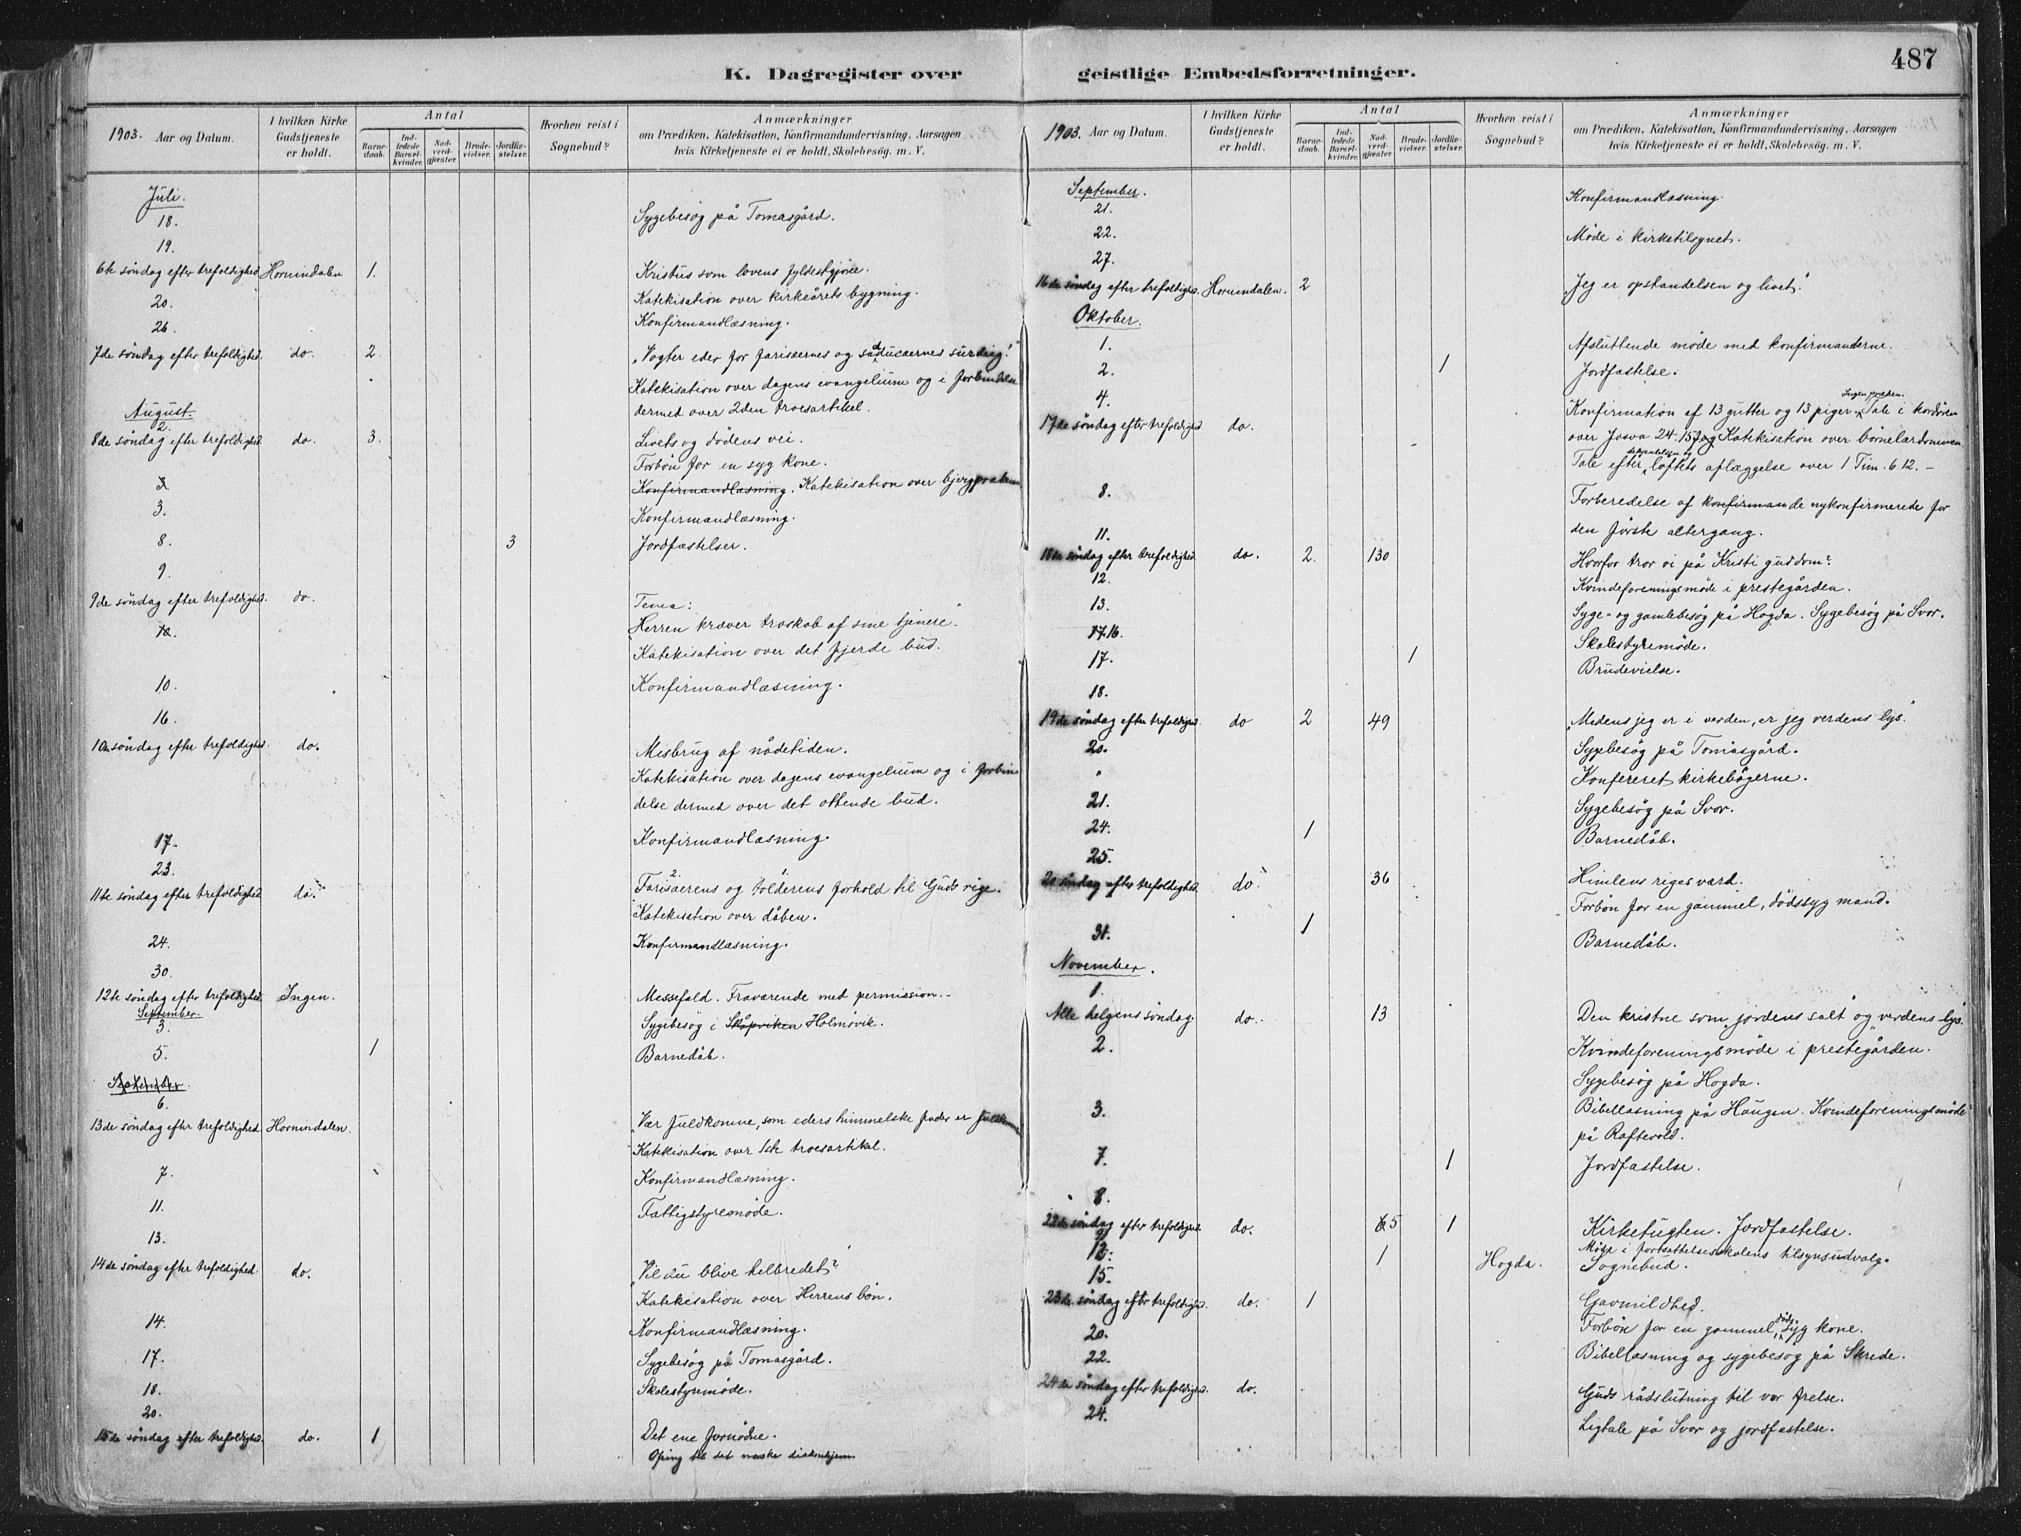 487
K. Dagregister over geistlige Embedsforretninger.
1903. Aar og Datum.
I hvilken Kirke Gudstjeneste er holdt.
Antal
Barnedaab.
Indledede Barselkvinder.
Nadverdgjæster.
Brudevielser.
Jordfæstelser.
Hvorhen reist i Sognebud?
Anmærkninger
om Prædiken, Katekisation, Konfirmandundervisning, Aarsagen
hvis Kirketjeneste ei er holdt, Skolebesøg. m. V.
Juli.
18. Sygebesøg på Tomasgård.
19.
6te søndag efter trefoldighed Hornindalen 1. Kristus som lovens fyldestgjører.
20. Katekisation over kirkeårets bygning.
26. Konfirmandlæsning.
7de søndag efter trefoldighed. do. 2. "Vogter eder for farisæernes og sadducæernes surdeig!"
Katekisation over dagens evangelium og i forbindelse
dermed over 2den troesartikel.
August.
2.
8de søndag efter trefoldighed. do. 3. Livets og dødens vei.
Forbøn for en syg kone.
Konfirmandlæsning. Katekisation over bjergprækenen
3. Konfirmandlæsning.
8. 3 Jordfæstelser.
9.
9de søndag efter trefoldighed. do. Tema:
Herren kræver troskab af sine tjenere.
10. Katekisation over det fjerde bud.
10. Konfirmandlæsning.
16.
10de søndag efter trefoldighed. do. Misbrug af nådetiden.
Katekisation over dagens evangelium og i forbin
delse dermed over det ottende bud.
17. Konfirmandlæsning.
23.
11te søndag efter trefoldighed do. Farisæerens og tolderens forhold til Guds rige.
Katekisation over dåben.
24. Konfirmandlæsning.
30.
12te søndag efter trefoldighed. Ingen. Messefald. Fraværende med permission.
September.
3. Sygebesøg i Skåpviken Holmøvik.
5. 1 Barnedåb.
September.
6.
13de søndag efter trefoldighed. Hornindalen. "Vær fuldkomne, som eders himmelske fader er fuldkommen
Katekisation over 1ste troesartikel.
7. Konfirmandlæsning.
11. Fattigstyremøde.
13.
14de søndag efter trefoldighed. do. "Vil du blive helbredet?"
Katekisation over Herrens bøn.
14. Konfirmandlæsning.
17. Sygebesøg på Tomasgård.
18. Skolestyremøde.
20.
15de søndag efter trefoldighed. do. 1 Det ene fornødne.
Ofring til det norske diakonhjem
1903. Aar og Datum.
I hvilken Kirke Gudstjeneste er holdt.
Antal
Barnedaab.
Indledede Barselkvinder.
Nadverdgjæster.
Brudevielser.
Jordfæstelser.
Hvorhen reist i Sognebud?
Anmærkninger
om Prædiken, Katekisation, Konfirmandundervisning, Aarsagen
hvis Kirketjeneste ei er holdt, Skolebesøg. m. V.
September.
21. Konfirmandlæsning.
22. Møde i kirketilsynet.
27.
16de søndag efter trefoldighed Hornindalen. 2 "Jeg er opstandelsen og livet."
Oktober.
1. Afsluttende møde med konfirmanderne.
2. 1 Jordfæstelse.
4. Ingen præken.
17de søndag efter trefoldighed do. Konfirmation af 13 gutter og 13 piger. Tale i kordøren
over Josva 24.15 og Katekisation over børnelærdommen
Tale efter løftets aflæggelse over 1 Tim. 6.12. -
8. Forberedelse af konfirmande nykonfirmerede for
den første altergang.
11.
18de søndag efter trefoldighed do. 2. 130 Hvorfor tror vi på Kristi guddom?
12. Kvindeforeningsmøde i prestegården.
13. Syge- og gamlebesøg på Hogda. Sygebesøg på Svor.
17. 16. Skolestyremøde.
17. 1 Brudevielse.
18.
19de søndag efter trefoldighed. do 2 49 "Medens jeg er i verden, er jeg verdens lys."
20. Sygebesøg på Tomasgård.
" Konfereret kirkebøgerne.
21. Sygebesøg på Svor.
24. 1 Barnedåb.
25.
20 søndag efter trefoldighed. do. 36 Himlens riges værd.
Forbøn for en gammel, dødssyg mand.
31. 1 Barnedåb.
November.
1.
Alle helgens søndag. do. 13 Den kristne som "jordens salt og "verdens lys.
2. Kvindeforeningsmøde i prestegården.
Sygebesøg på Hogda.
3. Bibellæsning på Haugen. Kvindeforeningsmøde
på Raftevold.
7. 1 Jordfæstelse.
8.
22de søndag efter trefoldighed. do. 65 1 Kirketugten. Jordfæstelse.
Møde i fortsættelsesskolens tilsynsudvalg.
12. 1 Hogda. Sognebud.
15.
23de søndag efter trefoldighed. do. 1 Gavmildhed.
Forbøn for en gammel, døds syg kone.
20. Bibellæsning og sygebesøg på Skrede.
22.
24de søndag efter trefoldighed. do. Guds rådslutning til vor frelse.
24. Ligtale på Svor og jordfæstelse.